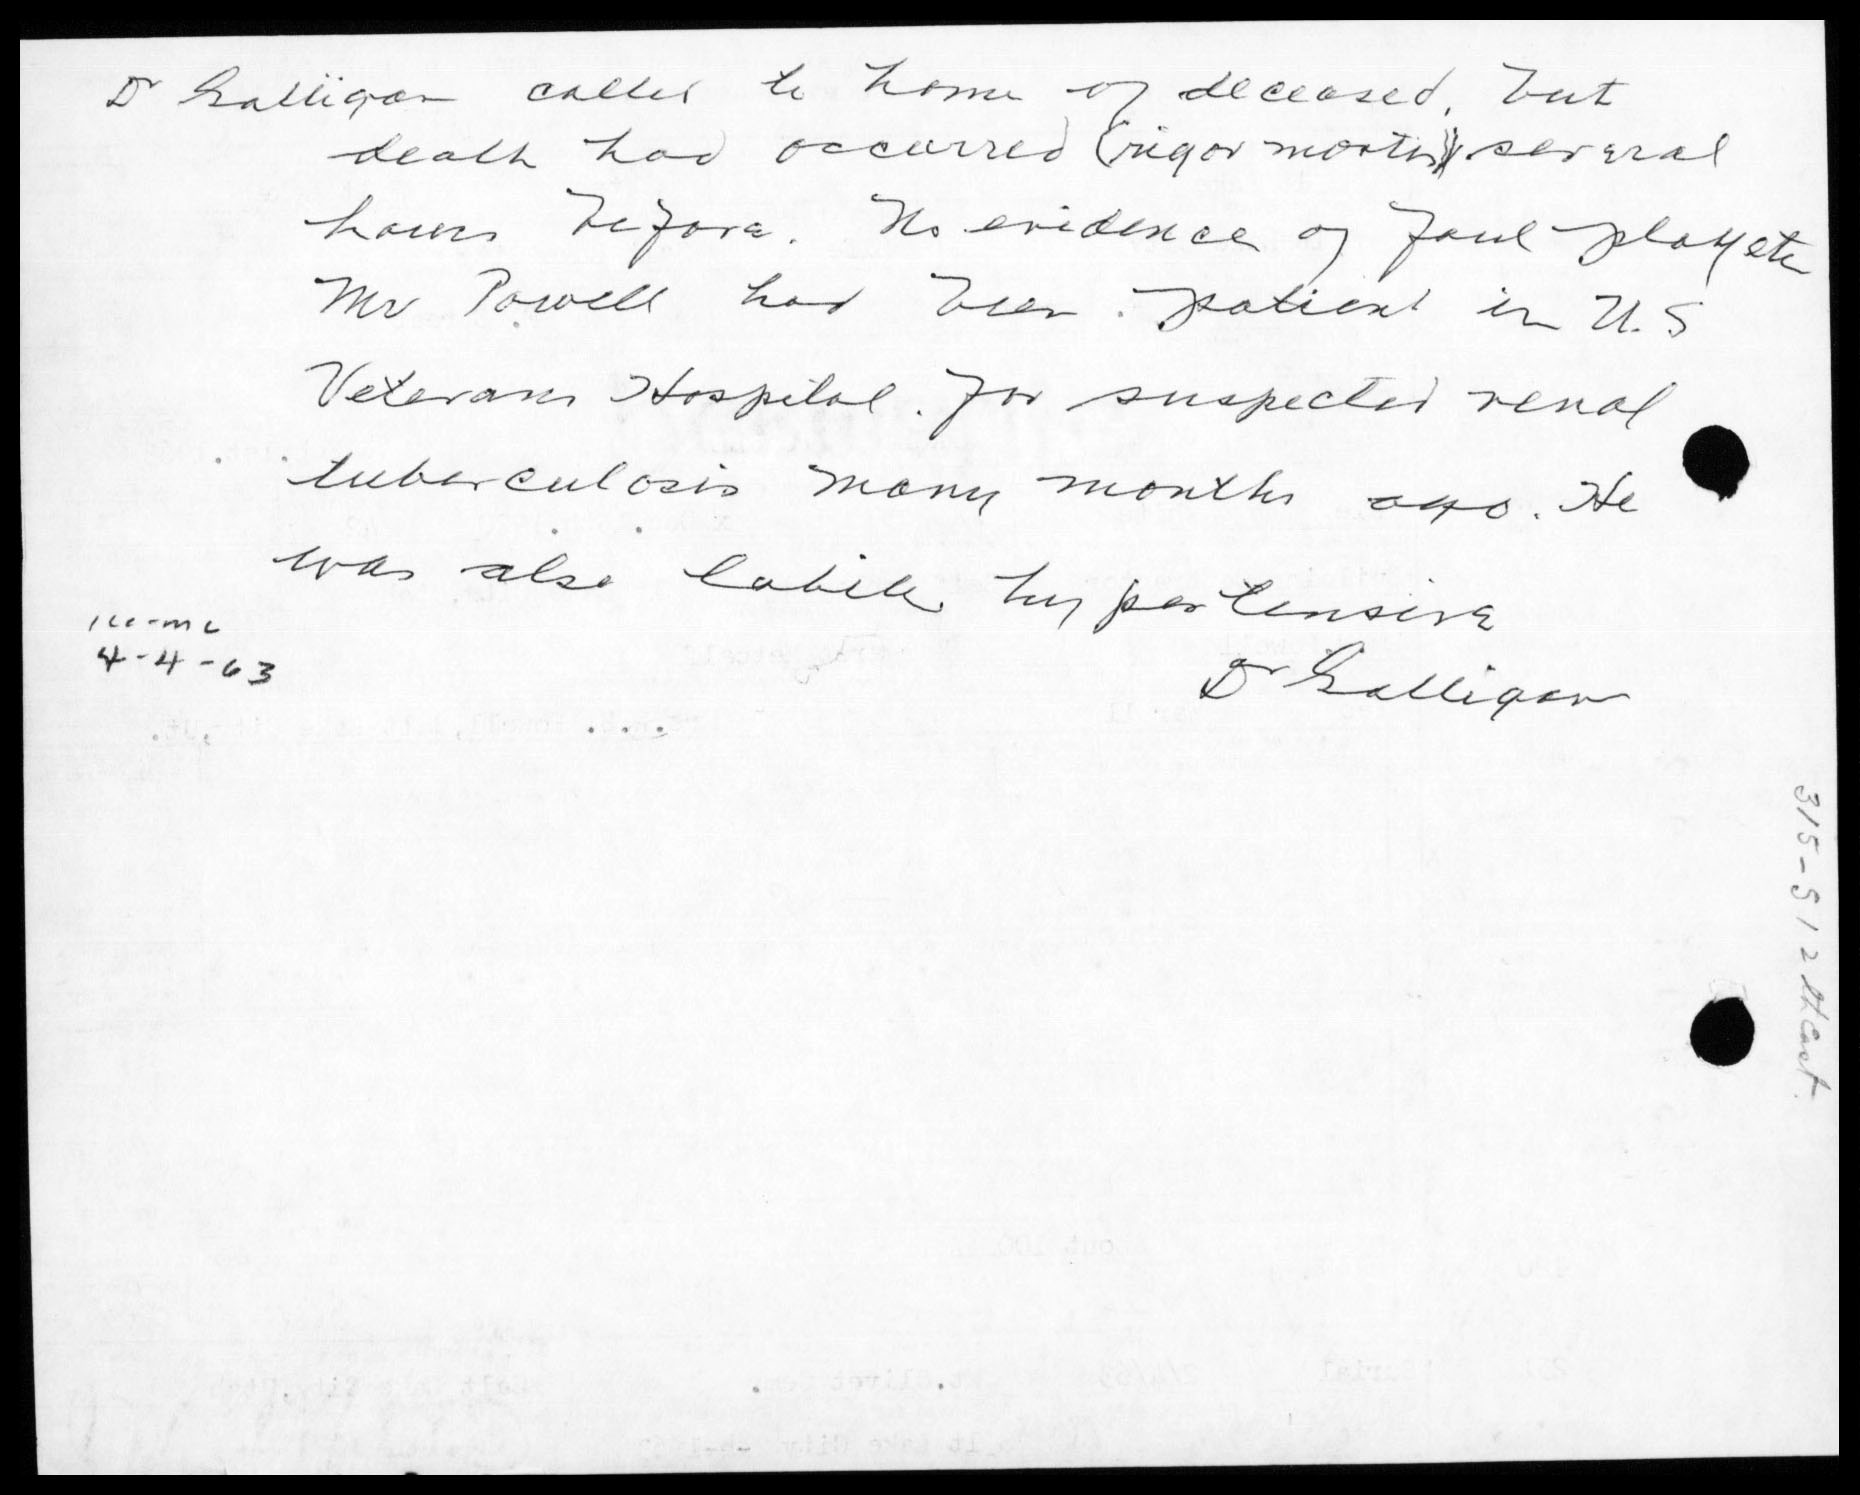 Dr Galligan called to home of deceased, but
death had occurred (rigor mortis) several
hours before. No evidence of foul play etc
Mr Powell had been patient in U.S
Veterans Hospital. for suspected renal
tuberculosis many months ago. He
was also labile hypertensive
4-4-63
Dr Galligan
315-S 12th East.